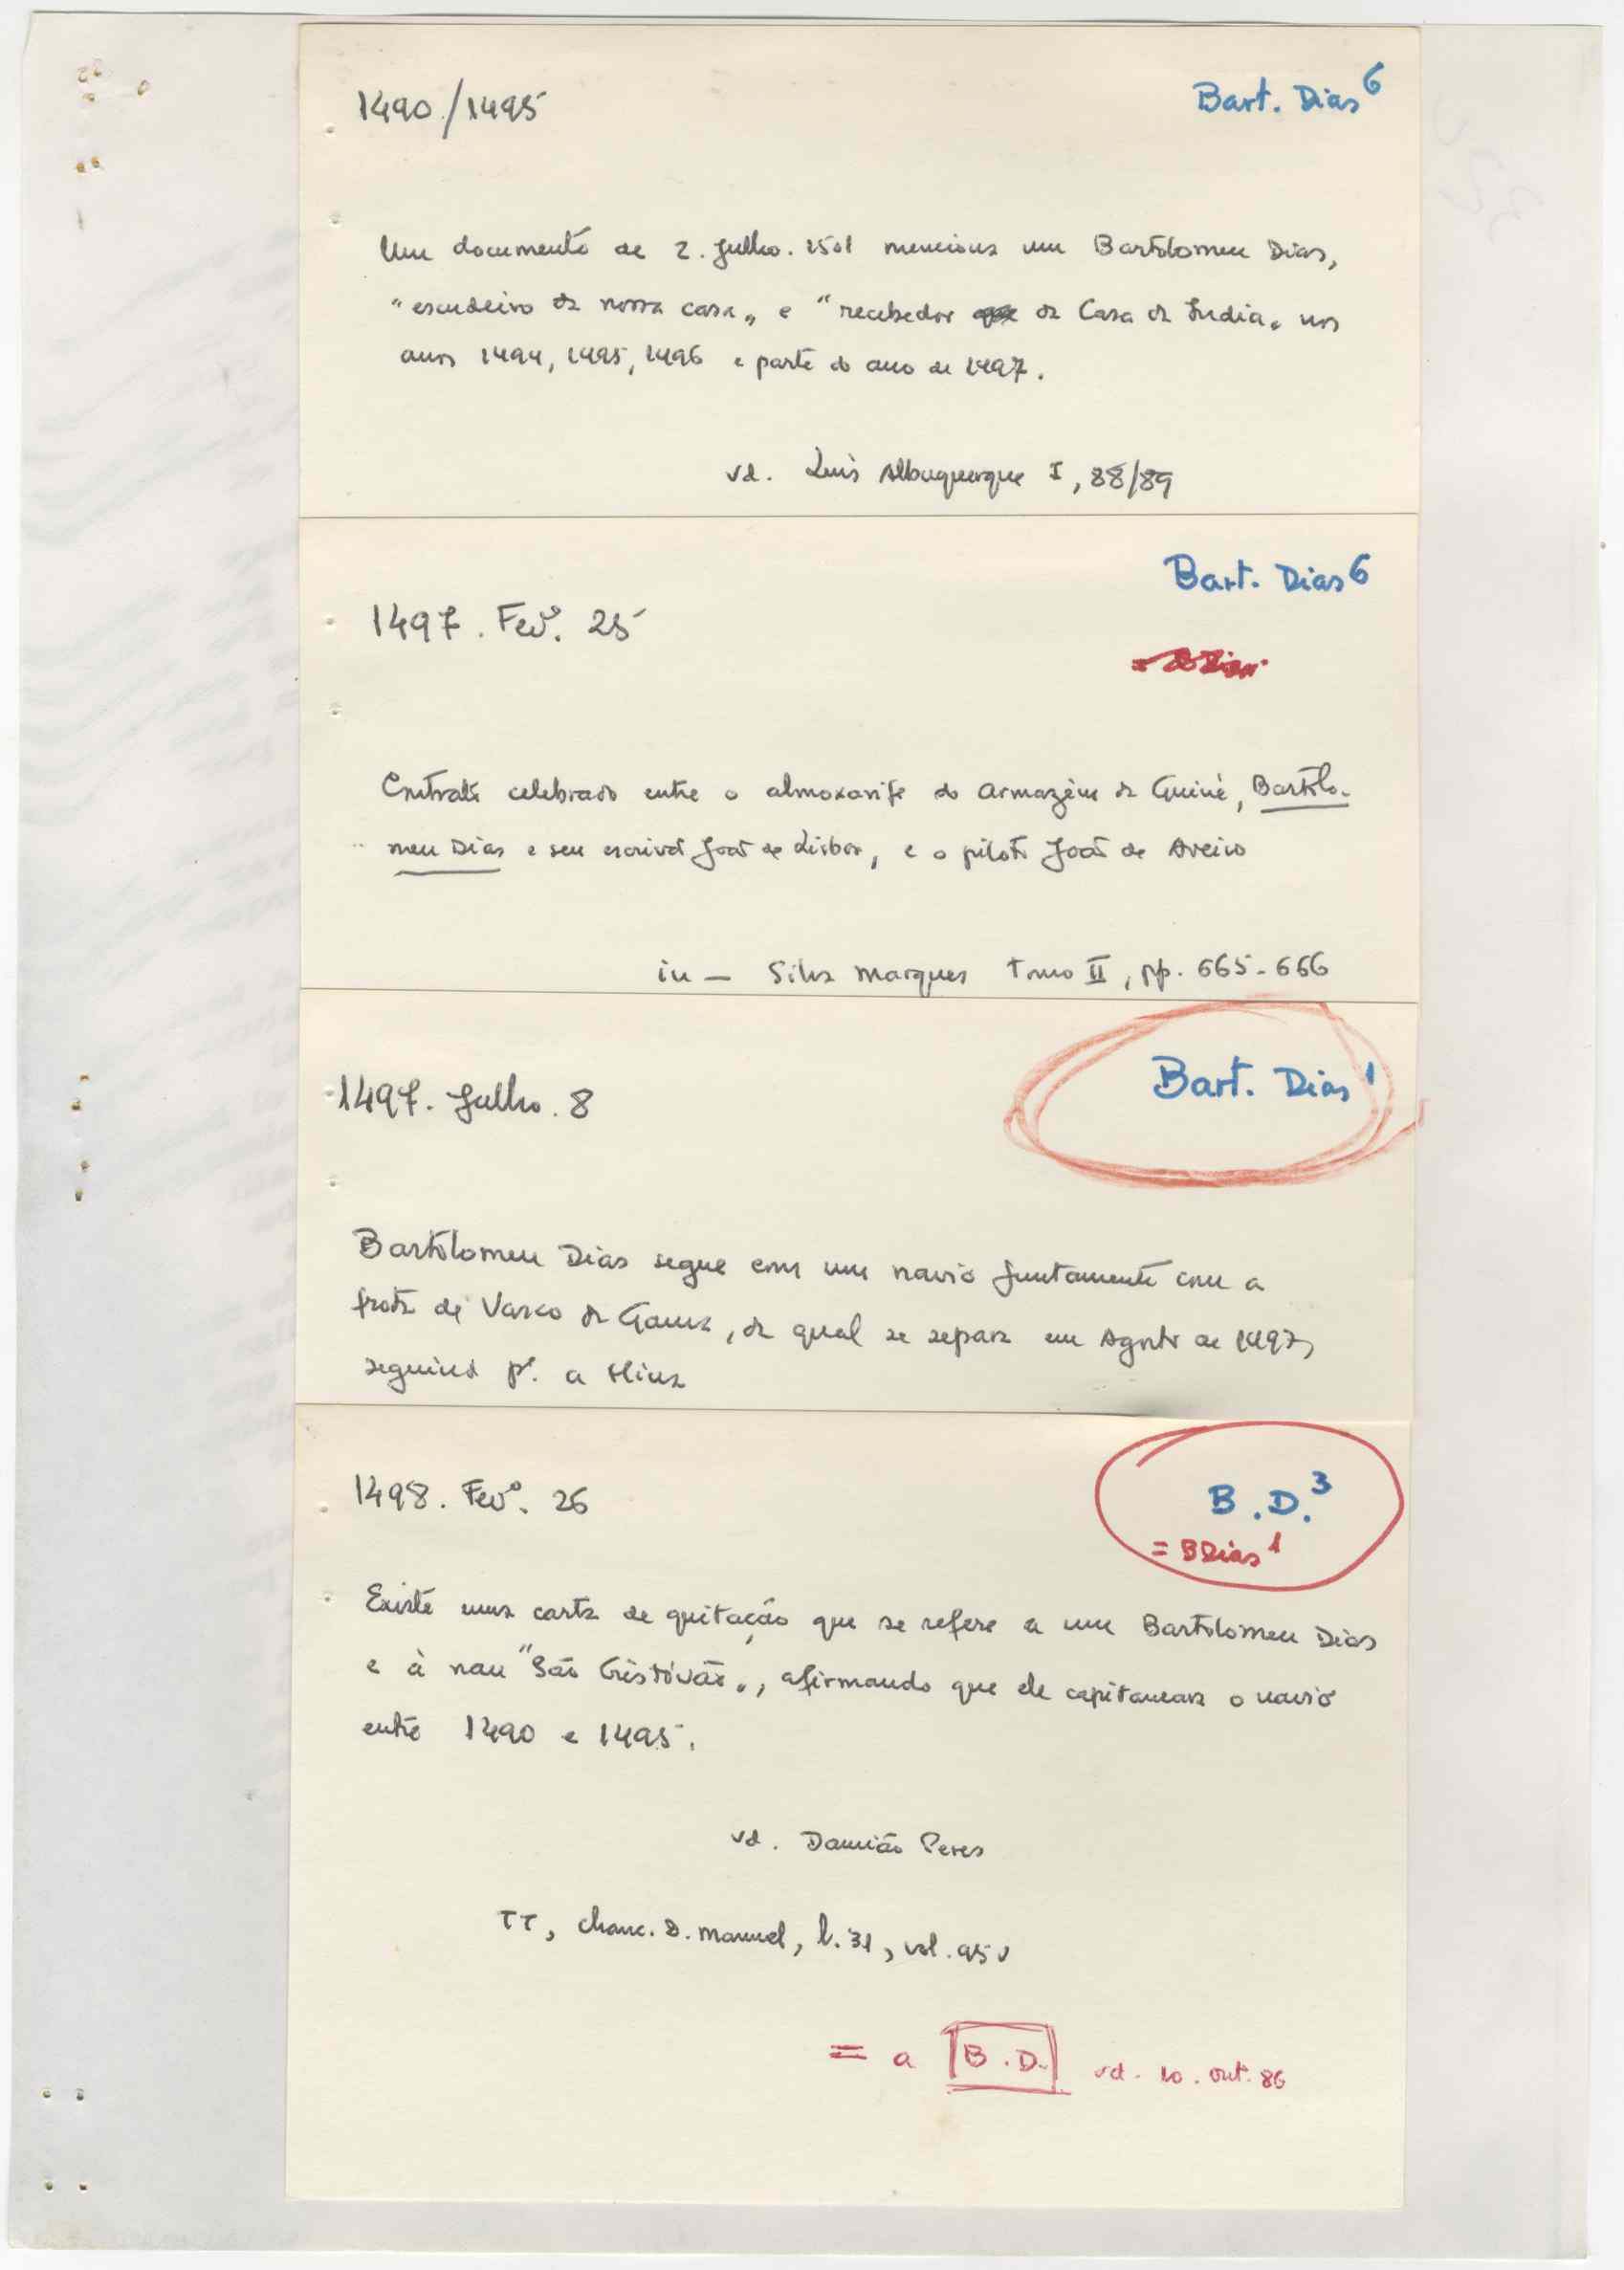 1490/1495
Bart. Dias 6
Um documento de 2. Julho. 1501 menciona um Bartolomeu Dias,
"escudeiro da nossa casa" e "recebedor da Casa da India" nos
anos 1494, 1495, 1496 e parte do ano de 1497.
vd. Luís Albuquerque I, 88/89
Bart. Dias 6
1497. Fevº. 25
Contrato celebrado entre o almoxarife do Armazém da Guiné, Bartolo-
meu Dias e seu escrivão João de Lisboa, e o piloto João de Aveiro
in — Silva Marques Tomo II, pp. 665-666
Bart. Dias 1
1497. Julho. 8
Bartolomeu Dias segue com um navio juntamente com a
frota de Vasco da Gama, da qual se separa em Agosto de 1497,
seguindo pª. a Mina
1498. Fevº. 26
B.D. 3
= BDias 1
Existe uma carta de quitação que se refere a um Bartolomeu Dias
e à nau "São Cristóvão", afirmando que ele capitaneara o navio
entre 1490 e 1495.
vd. Damião Peres
TT, chanc. D. Manuel, l. 31, vol. 95 v
= a B.D. vd. 10. out. 86